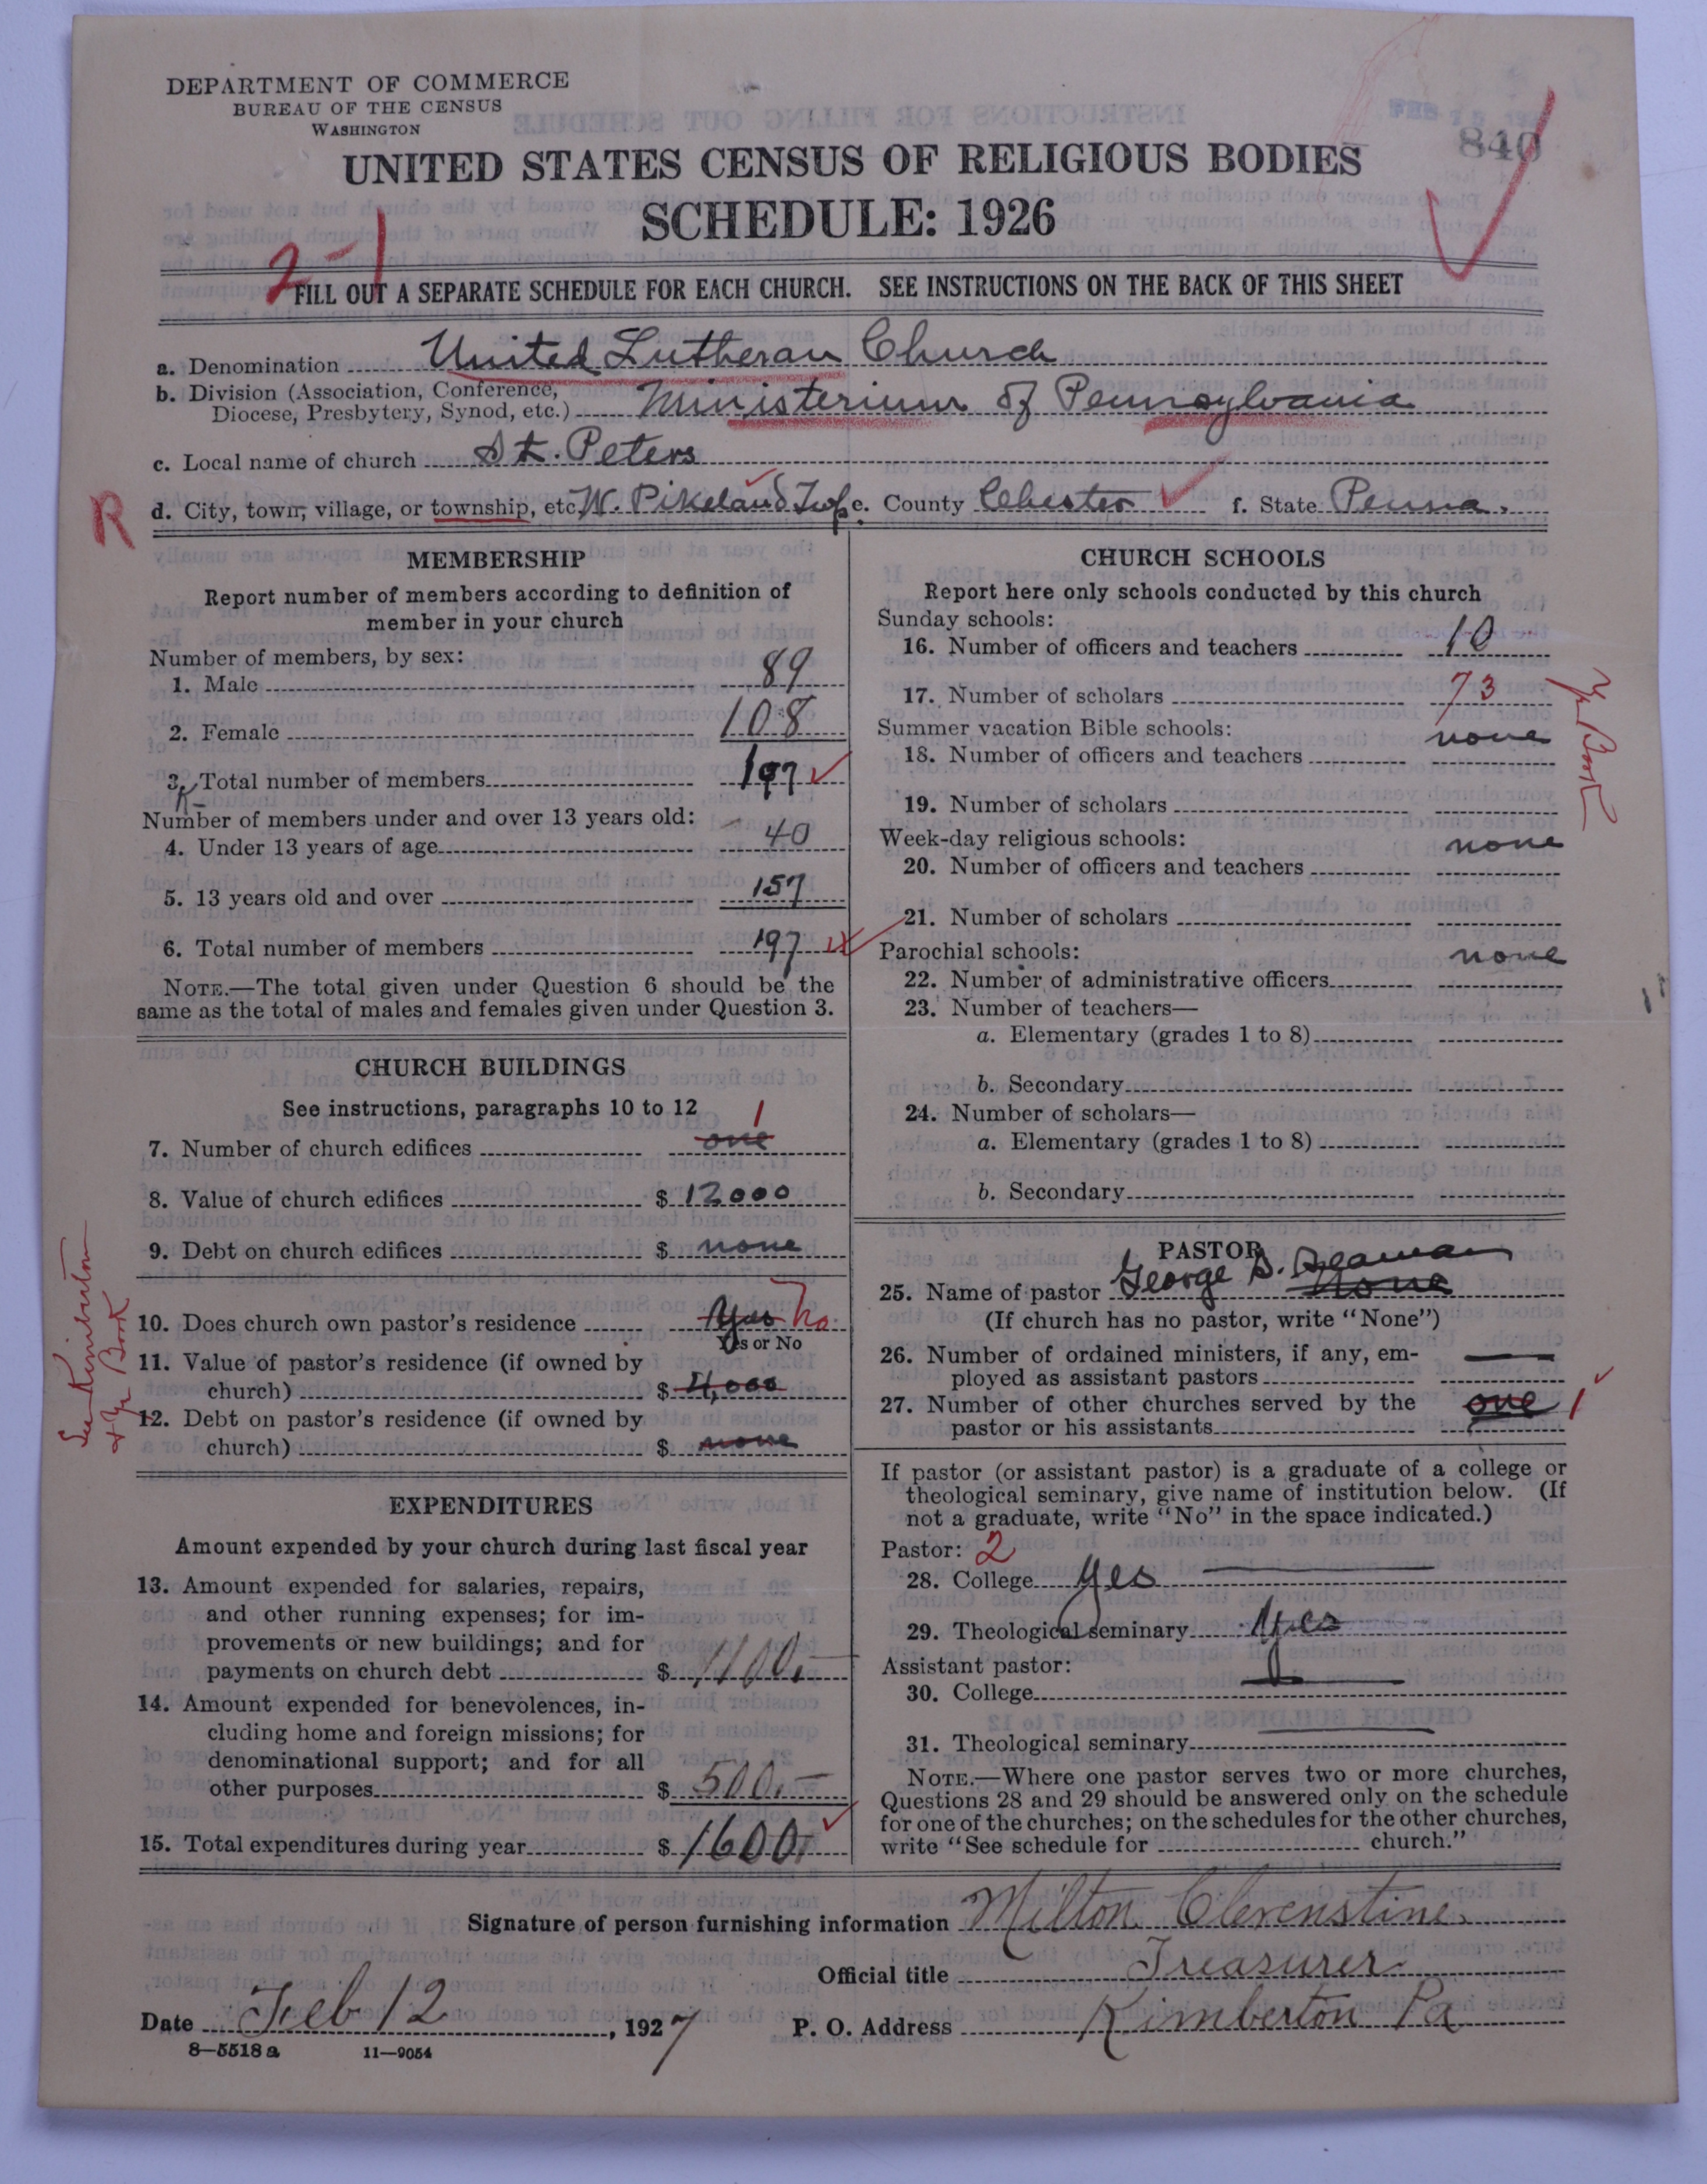 DEPARTMENT OF COMMERCE
BUREAU OF THE CENSUS
WASHINGTON
FEB 15
840
UNITED STATES CENSUS OF RELIGIOUS BODIES
SCHEDULE: 1926
2-1
FILL OUT A SEPARATE SCHEDULE FOR EACH CHURCH. SEE INSTRUCTIONS ON THE BACK OF THIS SHEET
a. Denomination United Lutheran Church
b. Division (Association, Conference,
Diocese, Presbytery, Synod, etc.) Ministerium of Pennsylvania
c. Local name of church St. Peters
R d. City, town, village, or township, etc. W. Pikeland Twp e. County Chester f. State Penna.
MEMBERSHIP
Report number of members according to definition of
member in your church
Number of members, by sex:
1. Male 89
2. Female 108
3. Total number of members 197
Number of members under and over 13 years old:
4. Under 13 years of age 40
5. 13 years old and over 157
6. Total number of members 197
NOTE.—The total given under Question 6 should be the
same as the total of males and females given under Question 3.
CHURCH BUILDINGS
See instructions, paragraphs 10 to 12
7. Number of church edifices one 1
8. Value of church edifices $ 12000
9. Debt on church edifices $ none
10. Does church own pastor's residence Yes No
Yes or No
11. Value of pastor's residence (if owned by
church) $ 4,000
12. Debt on pastor's residence (if owned by
church) $ none
See Kimberton
& Yr Book
EXPENDITURES
Amount expended by your church during last fiscal year
13. Amount expended for salaries, repairs,
and other running expenses; for im-
provements or new buildings; and for
payments on church debt $ 1100.—
14. Amount expended for benevolences, in-
cluding home and foreign missions; for
denominational support; and for all
other purposes $ 500.—
15. Total expenditures during year $ 1600.—
CHURCH SCHOOLS
Report here only schools conducted by this church
Sunday schools:
16. Number of officers and teachers 10
17. Number of scholars 73
Yr Book
Summer vacation Bible schools:
18. Number of officers and teachers none
19. Number of scholars
Week-day religious schools:
20. Number of officers and teachers none
21. Number of scholars
Parochial schools:
22. Number of administrative officers none
23. Number of teachers—
a. Elementary (grades 1 to 8)
b. Secondary
24. Number of scholars—
a. Elementary (grades 1 to 8)
b. Secondary
PASTOR
25. Name of pastor George S. none
(If church has no pastor, write "None")
26. Number of ordained ministers, if any, em-
ployed as assistant pastors —
27. Number of other churches served by the
pastor or his assistants one 1
If pastor (or assistant pastor) is a graduate of a college or
theological seminary, give name of institution below. (If
not a graduate, write "No" in the space indicated.)
Pastor: 2
28. College Yes —
29. Theological seminary Yes
Assistant pastor:
30. College —
31. Theological seminary —
NOTE.—Where one pastor serves two or more churches,
Questions 28 and 29 should be answered only on the schedule
for one of the churches; on the schedules for the other churches,
write "See schedule for church."
Signature of person furnishing information Milton Clevenstine
Official title Treasurer
Date Feb 12, 1927 P. O. Address Kimberton Pa
8—5518 a 11—9054